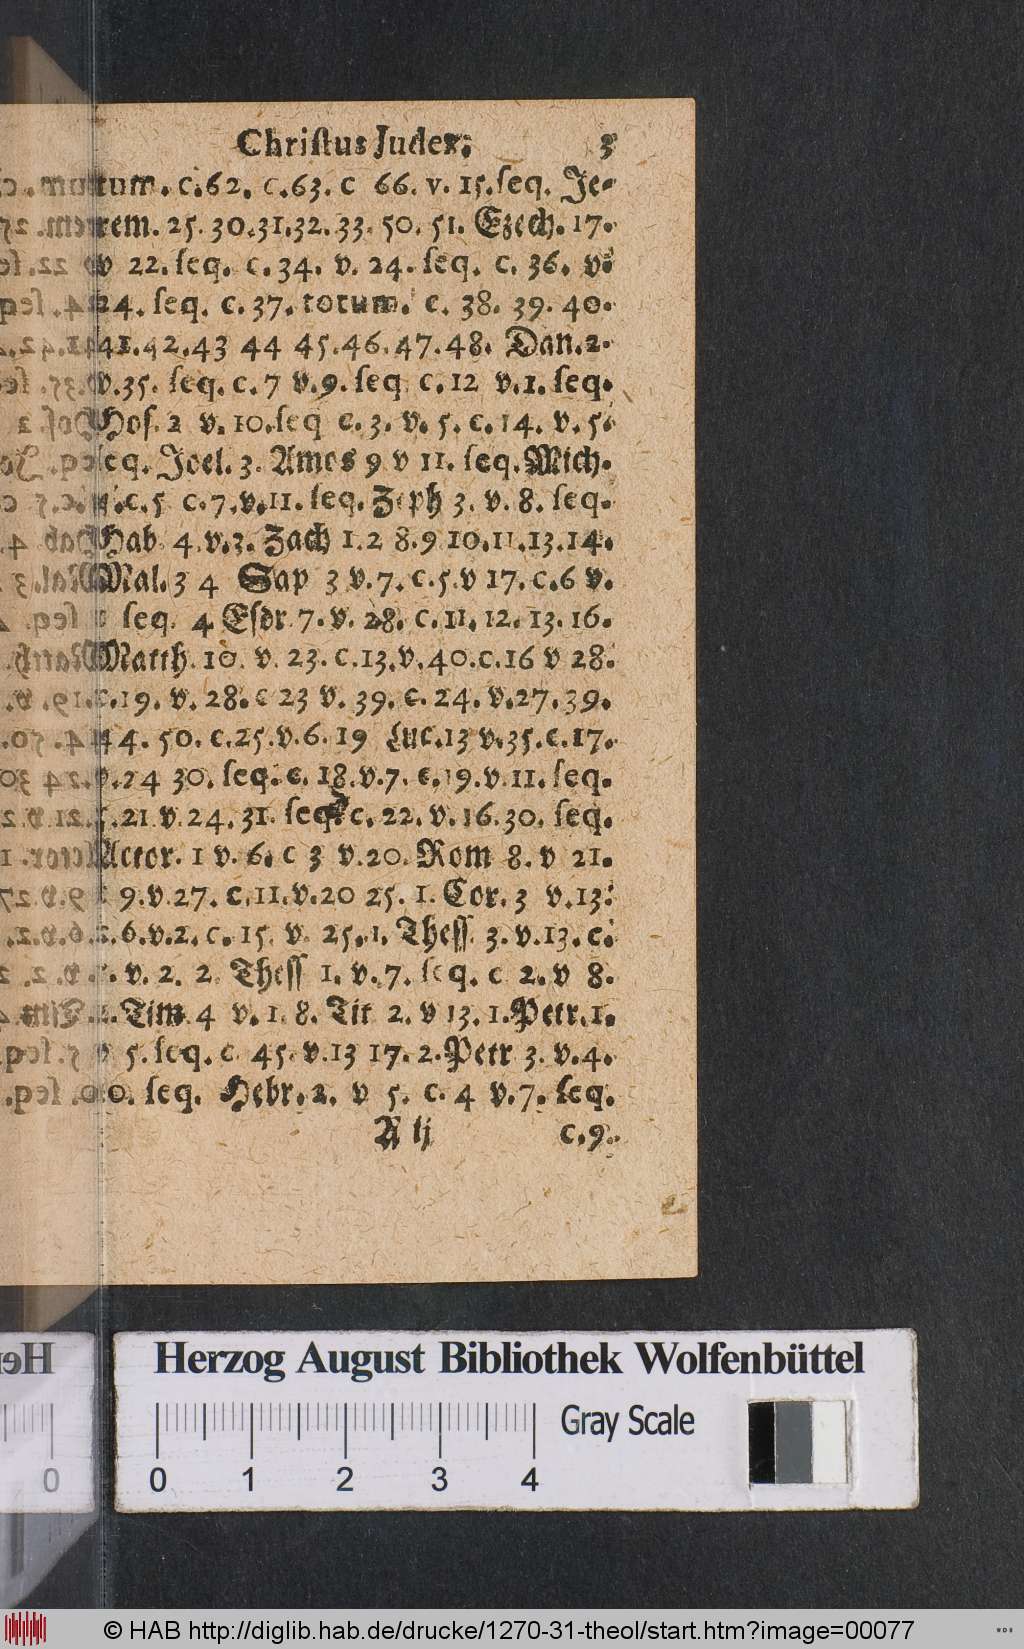 Chriſtus Judex. 3
tum. c.62. c.63. c 66. v. 15.ſeq. Je-
rem. 25. 30.31.32. 33. 50. 51. Ezech. 17.
v 22. ſeq. c. 34. v. 24. ſeq. c. 36. v.
24. ſeq. c. 37. totum. c. 38. 39. 40.
41.42.43 44 45.46.47.48. Dan.2.
v.35. ſeq. c. 7 v.9. ſeq c.12 v.1. ſeq.
Hoſ. 2 v. 10.ſeq c. 3. v. 5. c. 14. v. 5.
ſeq. Joel. 3. Amos 9 v 11. ſeq. Mich.
c.5 c.7.v.11. ſeq. Zeph 3. v. 8. ſeq.
Hab 4.v.3. Zach 1.2 8.9 10.11.13.14.
Mal. 3 4 Sap 3 v.7. c.5.v 17. c.6 v.
ſeq. 4 Eſdr 7. v. 28. c.11. 12. 13. 16.
Matth. 10. v. 23. c.13.v.40.c.16 v 28.
c.19. v. 28. c 23 v. 39. c. 24. v.27.39.
44. 50. c.25.v.6. 19 Luc.13 v.35.c.17.
v.24 30. ſeq. c. 18.v.7. c.19.v.11. ſeq.
21.v.24. 31. ſeq. c. 22. v. 16.30. ſeq.
Actor. 1 v. 6. c 3 v.20. Rom 8. v 21.
9.v.27. c.11.v.20 25. 1. Cor. 3 v.13.
6.v.2. c. 15. v. 25.1. Theſſ. 3. v.13. c.
v. 2. 2. Theſſ 1. v.7. ſeq. c 2. v 8.
Tim 4 v. 1. 8. Tit 2. v 13. 1.Petr.1.
v 5. ſeq. c. 4 5. v.13 17. 2. Petr 3. v.4.
10. ſeq. Hebr. 2. v 5. c. 4 v.7. ſeq.
A ij c.9.
Herzog August Bibliothek Wolfenbüttel
Gray Scale
0 1 2 3 4
© HAB http://diglib.hab.de/drucke/1270-31-theol/start.htm?image=00077